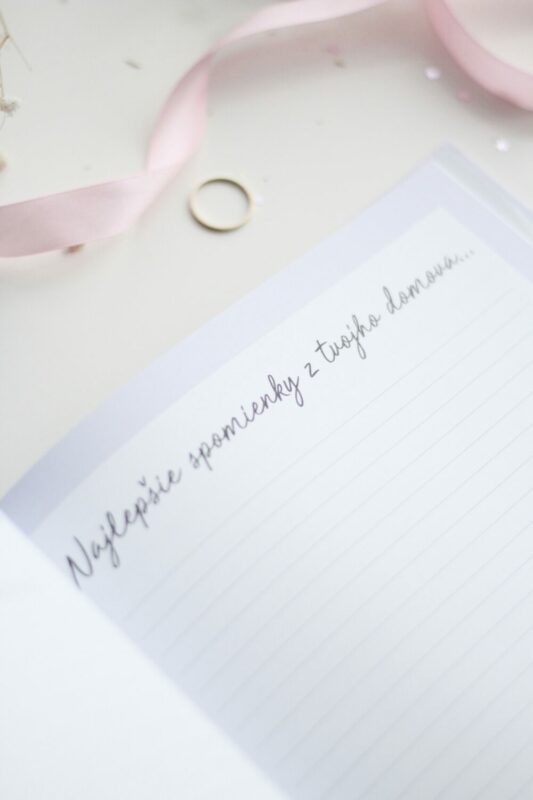 Najlepšie spomienky z tvojho domova...